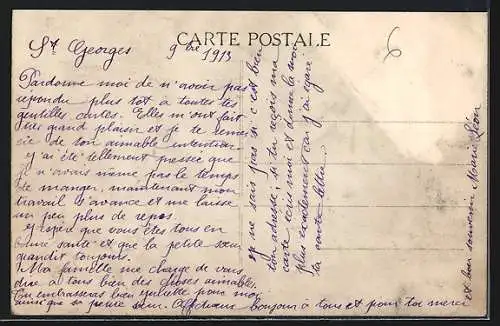 CARTE POSTALE
6
St Georges 9bre 1913
Pardonne moi de n'avoir pas
repondu plus tot à toutes tes
gentilles cartes. Elles m'ont fait
très grand plaisir et je te remer
cie de ton aimable intention
j'ai été tellement pressée que
je n'avais même pas le temps
de manger, maintenant mon
travail s'avance et me laisse
un peu plus de repos.
J'espère que vous êtes tous en
bonne santé et que la petite sœur
grandit toujours.
Ma famille me charge de vous
dire à tous bien des choses aimables.
Tu embrasseras bien Juliette pour moi
ainsi que sa petite sœur. Affectueux bonjour à tous et pour toi merci
et bon souvenir Marie Léon
je ne sais pas si c'est bien
ton adresse; si tu reçois ma
carte écris moi et donne la moi
plus exactement car j'ai égaré
ta carte lettre.